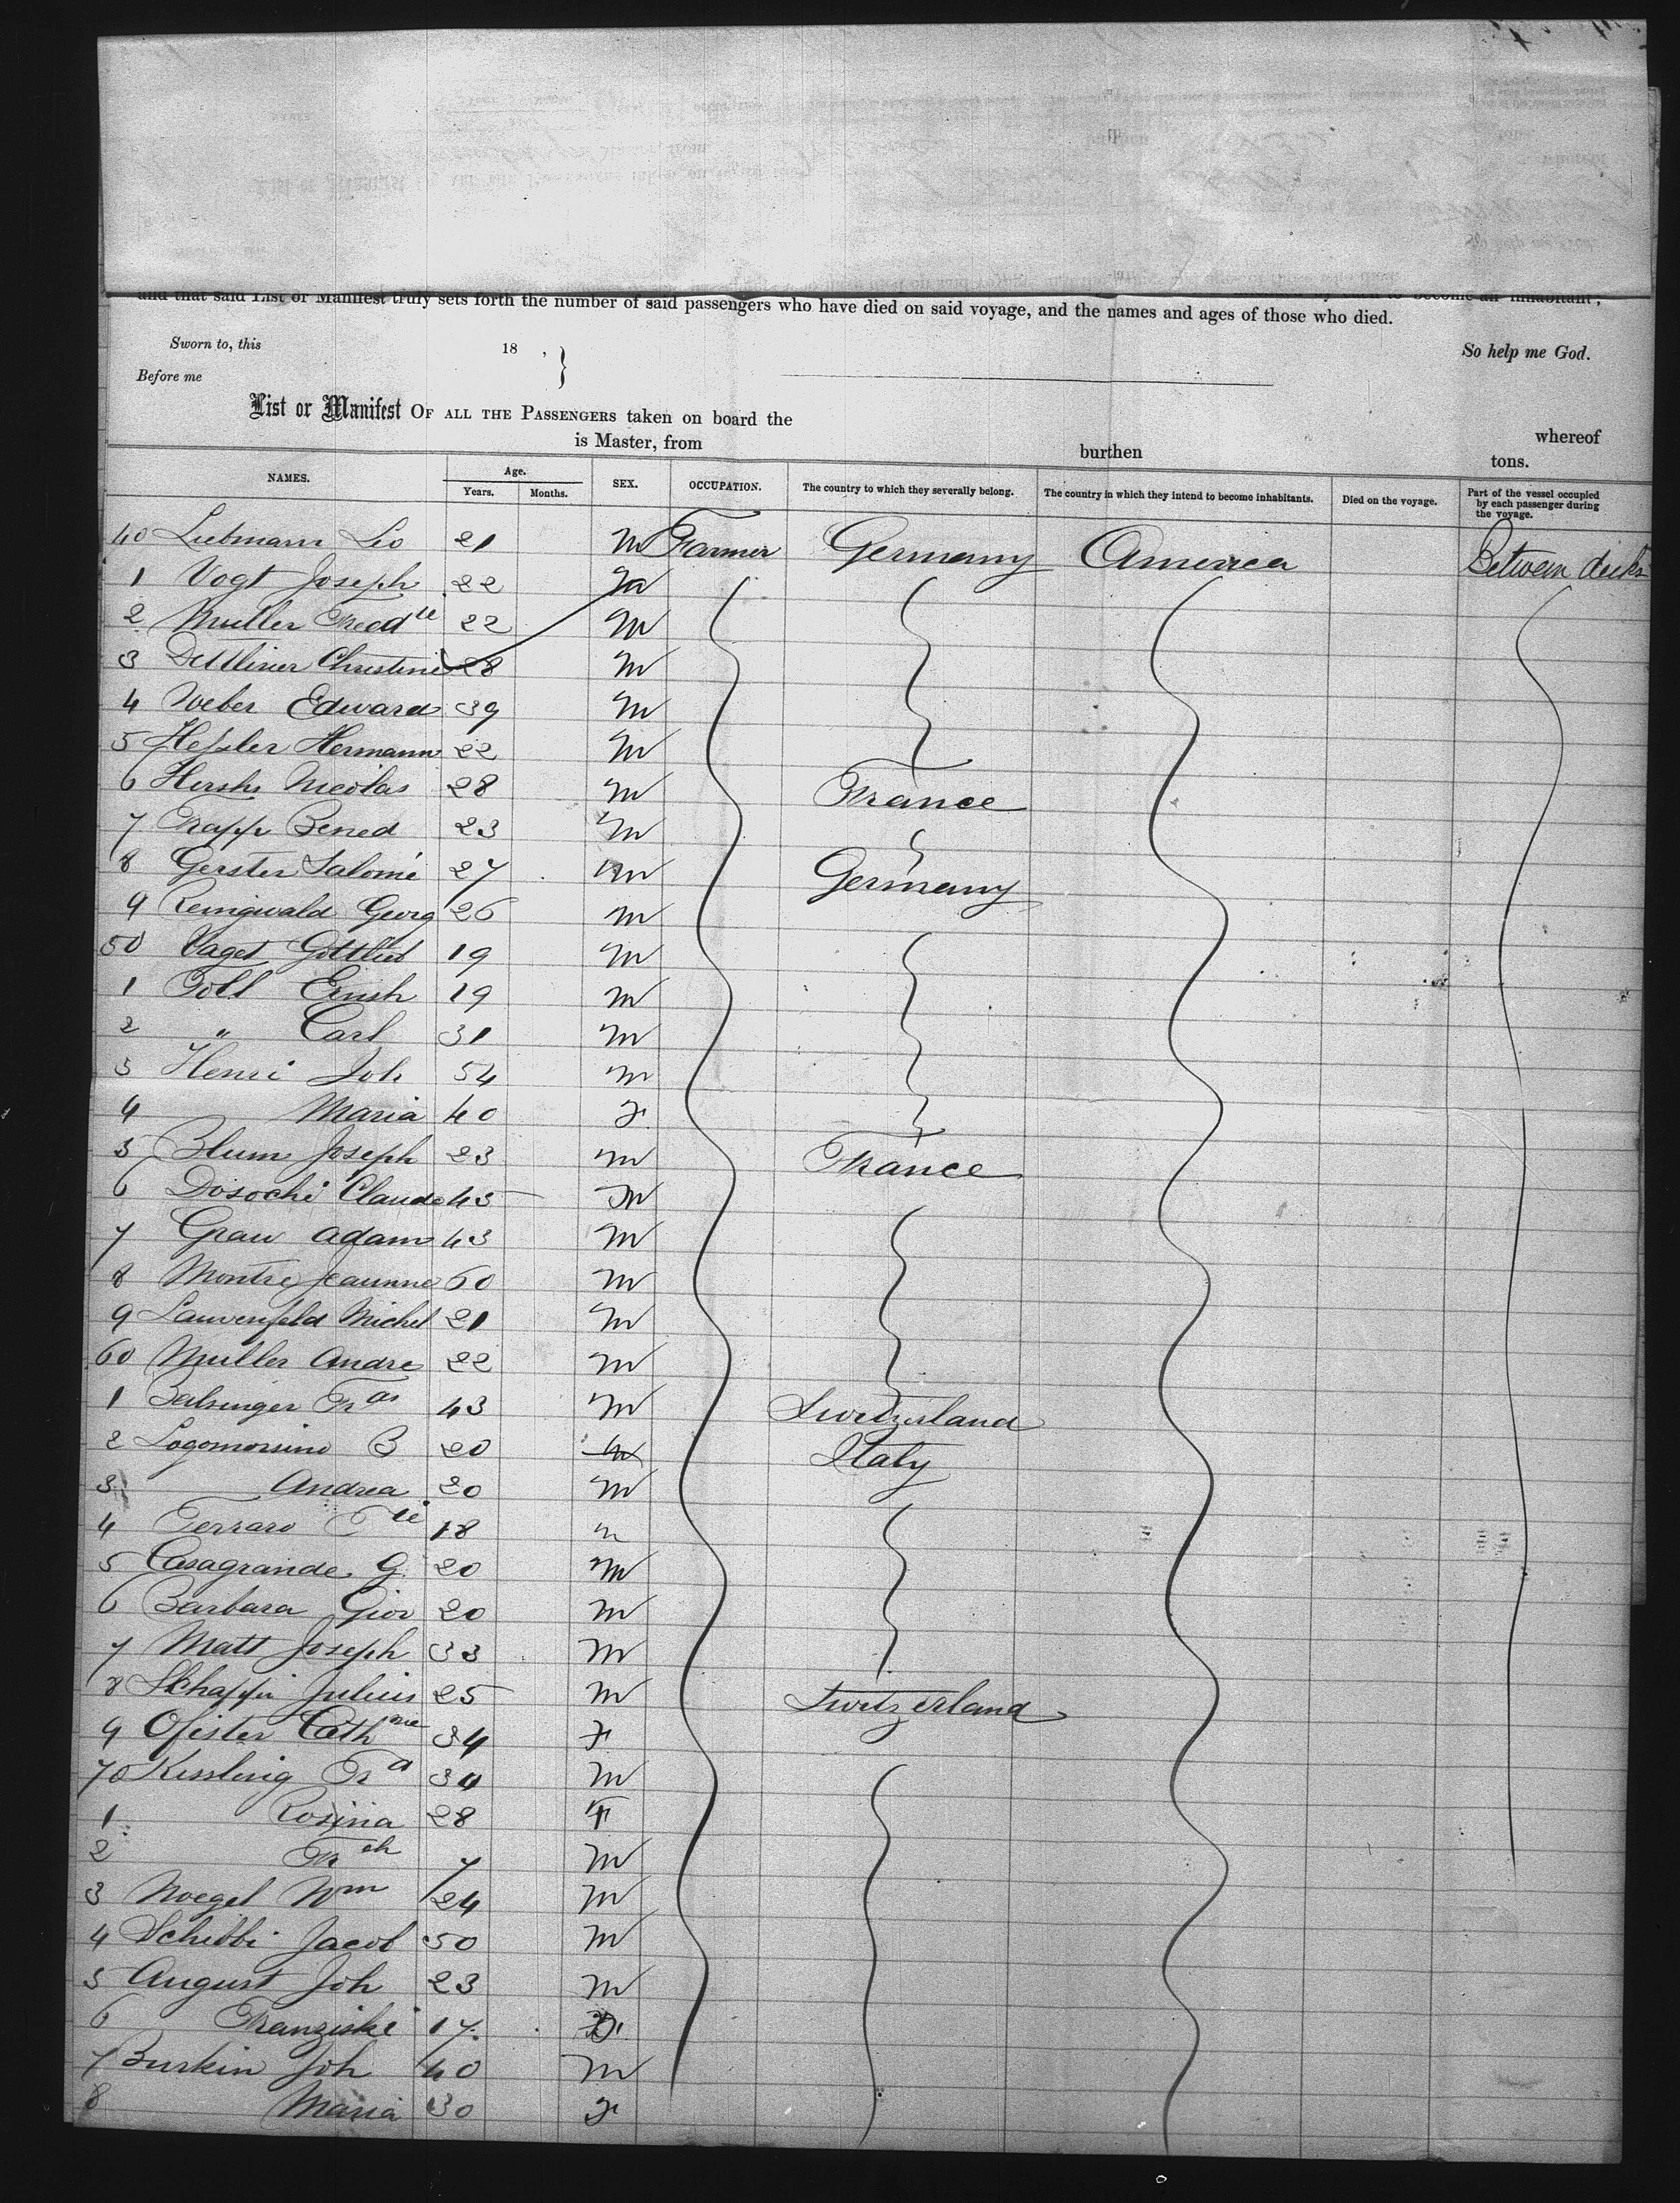 and that said List or Manifest truly sets forth the number of said passengers who have died on said voyage, and the names and ages of those who died.
Sworn to, this 18 , } So help me God.
Before me
List or Manifest OF ALL THE PASSENGERS taken on board the whereof
is Master, from burthen tons.
NAMES. Age. Years. Months. SEX. OCCUPATION. The country to which they severally belong. The country in which they intend to become inhabitants. Died on the voyage. Part of the vessel occupied by each passenger during the voyage.
40 Liebmann Leo 21 M Farmer Germany America Between decks
1 Vogt Joseph 22
2 Muller Fred 22 M
3 Dettliner Christine 28 M
4 Weber Edward 39 M
5 Hessler Hermann 22 M
6 Hersh Nicolas 28 M France
7 Trapp Bened 23 M
8 Gerster Salomé 27 Germany
9 Reingwald Georg 26 M
50 Vaget Gottlieb 19 M
1 Toll Ernst 19 M
2 " Carl 31 M
3 Henri Joh 54 M
4 Maria 40 F
5 Blum Joseph 23 M France
6 Dosochi Claude 45 M
7 Graw Adam 43 M
8 Montre Jeanne 60 M
9 Lauvenfeld Michel 21 M
60 Muller Andre 22 M
1 43 M Switzerland
2 Logomorsino B 20 M Italy
3 Andrea 20 M
4 Ferraro 18 M
5 Casagrande G. 20 M
6 Barbara Giov 20 M
7 Matt Joseph 33 M
8 Schappi Julius 25 M Switzerland
9 Ofister Cath 34 F
70 Kissling Fr 34 M
1 Rosina 28 F
2 7 M
3 Noegel Wm 24 M
4 Schibbi Jacob 50 M
5 August Joh 23 M
6 Franziski 17 F
7 Burkin Joh 40 M
8 Maria 30 F